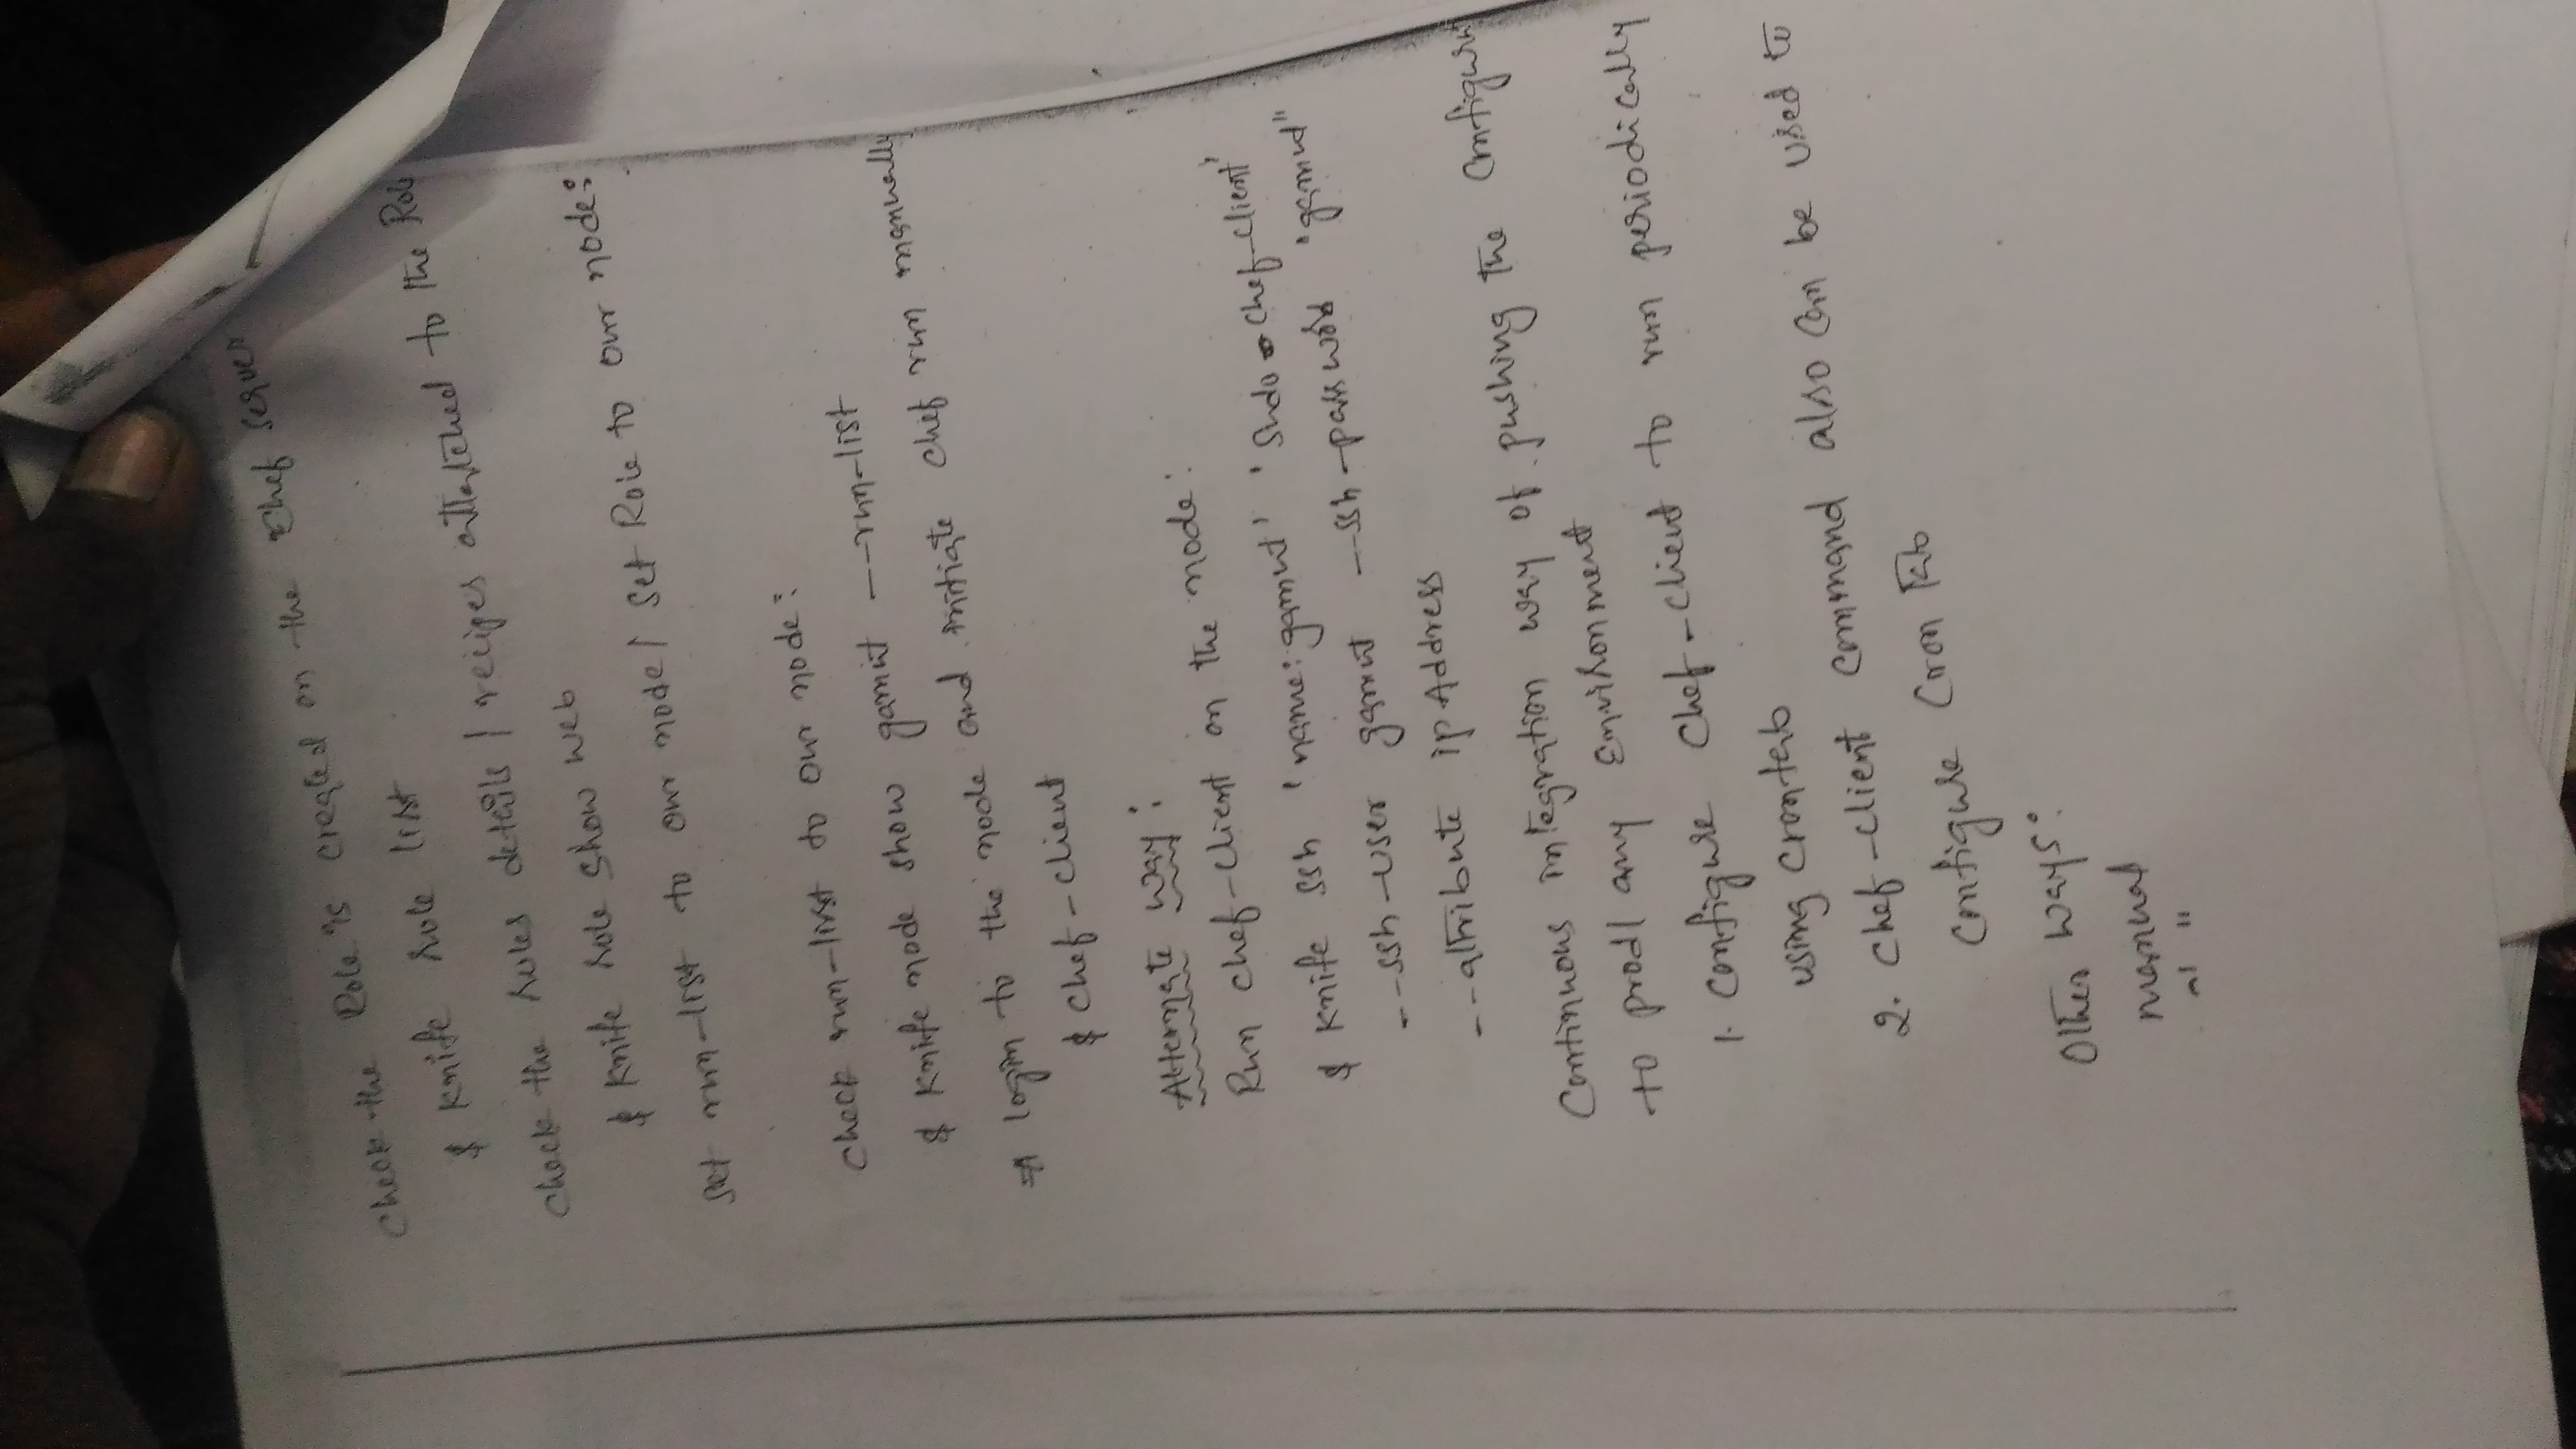 Check the Role is created on the Chef server
$ knife role list
Check the rules details / recipes attatched to the Role
$ knife role show web
set run-list to our node / set Role to our node:
Check run-list to our node:
$ knife node show gamit --run-list
⇒ login to the node and initiate chef run manually
$ chef-client
Alternate way:
Run chef-client on the node:
$ knife ssh 'name:gamut' 'sudo chef-client'
--ssh-user gamut --ssh-password "gamut"
--attribute ipAddress
Continuous integration way of pushing the configure
to prod / any Environment
1. Configure chef-client to run periodically
using crontab
2. chef-client command also can be used to
Configure Cron Tab
Other ways:
manual